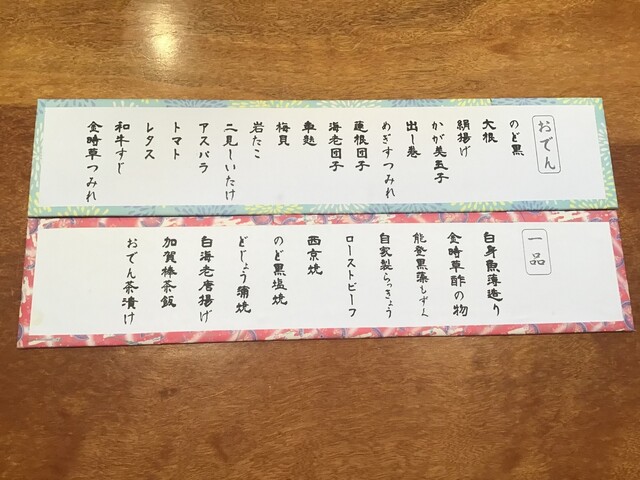 おでん
のど黒
大根
絹揚げ
かが美玉子
出し巻
めぎすつみれ
蓮根団子
海老団子
車麩
梅貝
岩たこ
二見しいたけ
アスパラ
トマト
レタス
和牛すじ
金時草つみれ
一品
白身魚薄造り
金時草酢の物
能登黒藻もずく
自家製らっきょう
ローストビーフ
西京焼
のど黒塩焼
どじょう蒲焼
白海老唐揚げ
加賀棒茶飯
おでん茶漬け